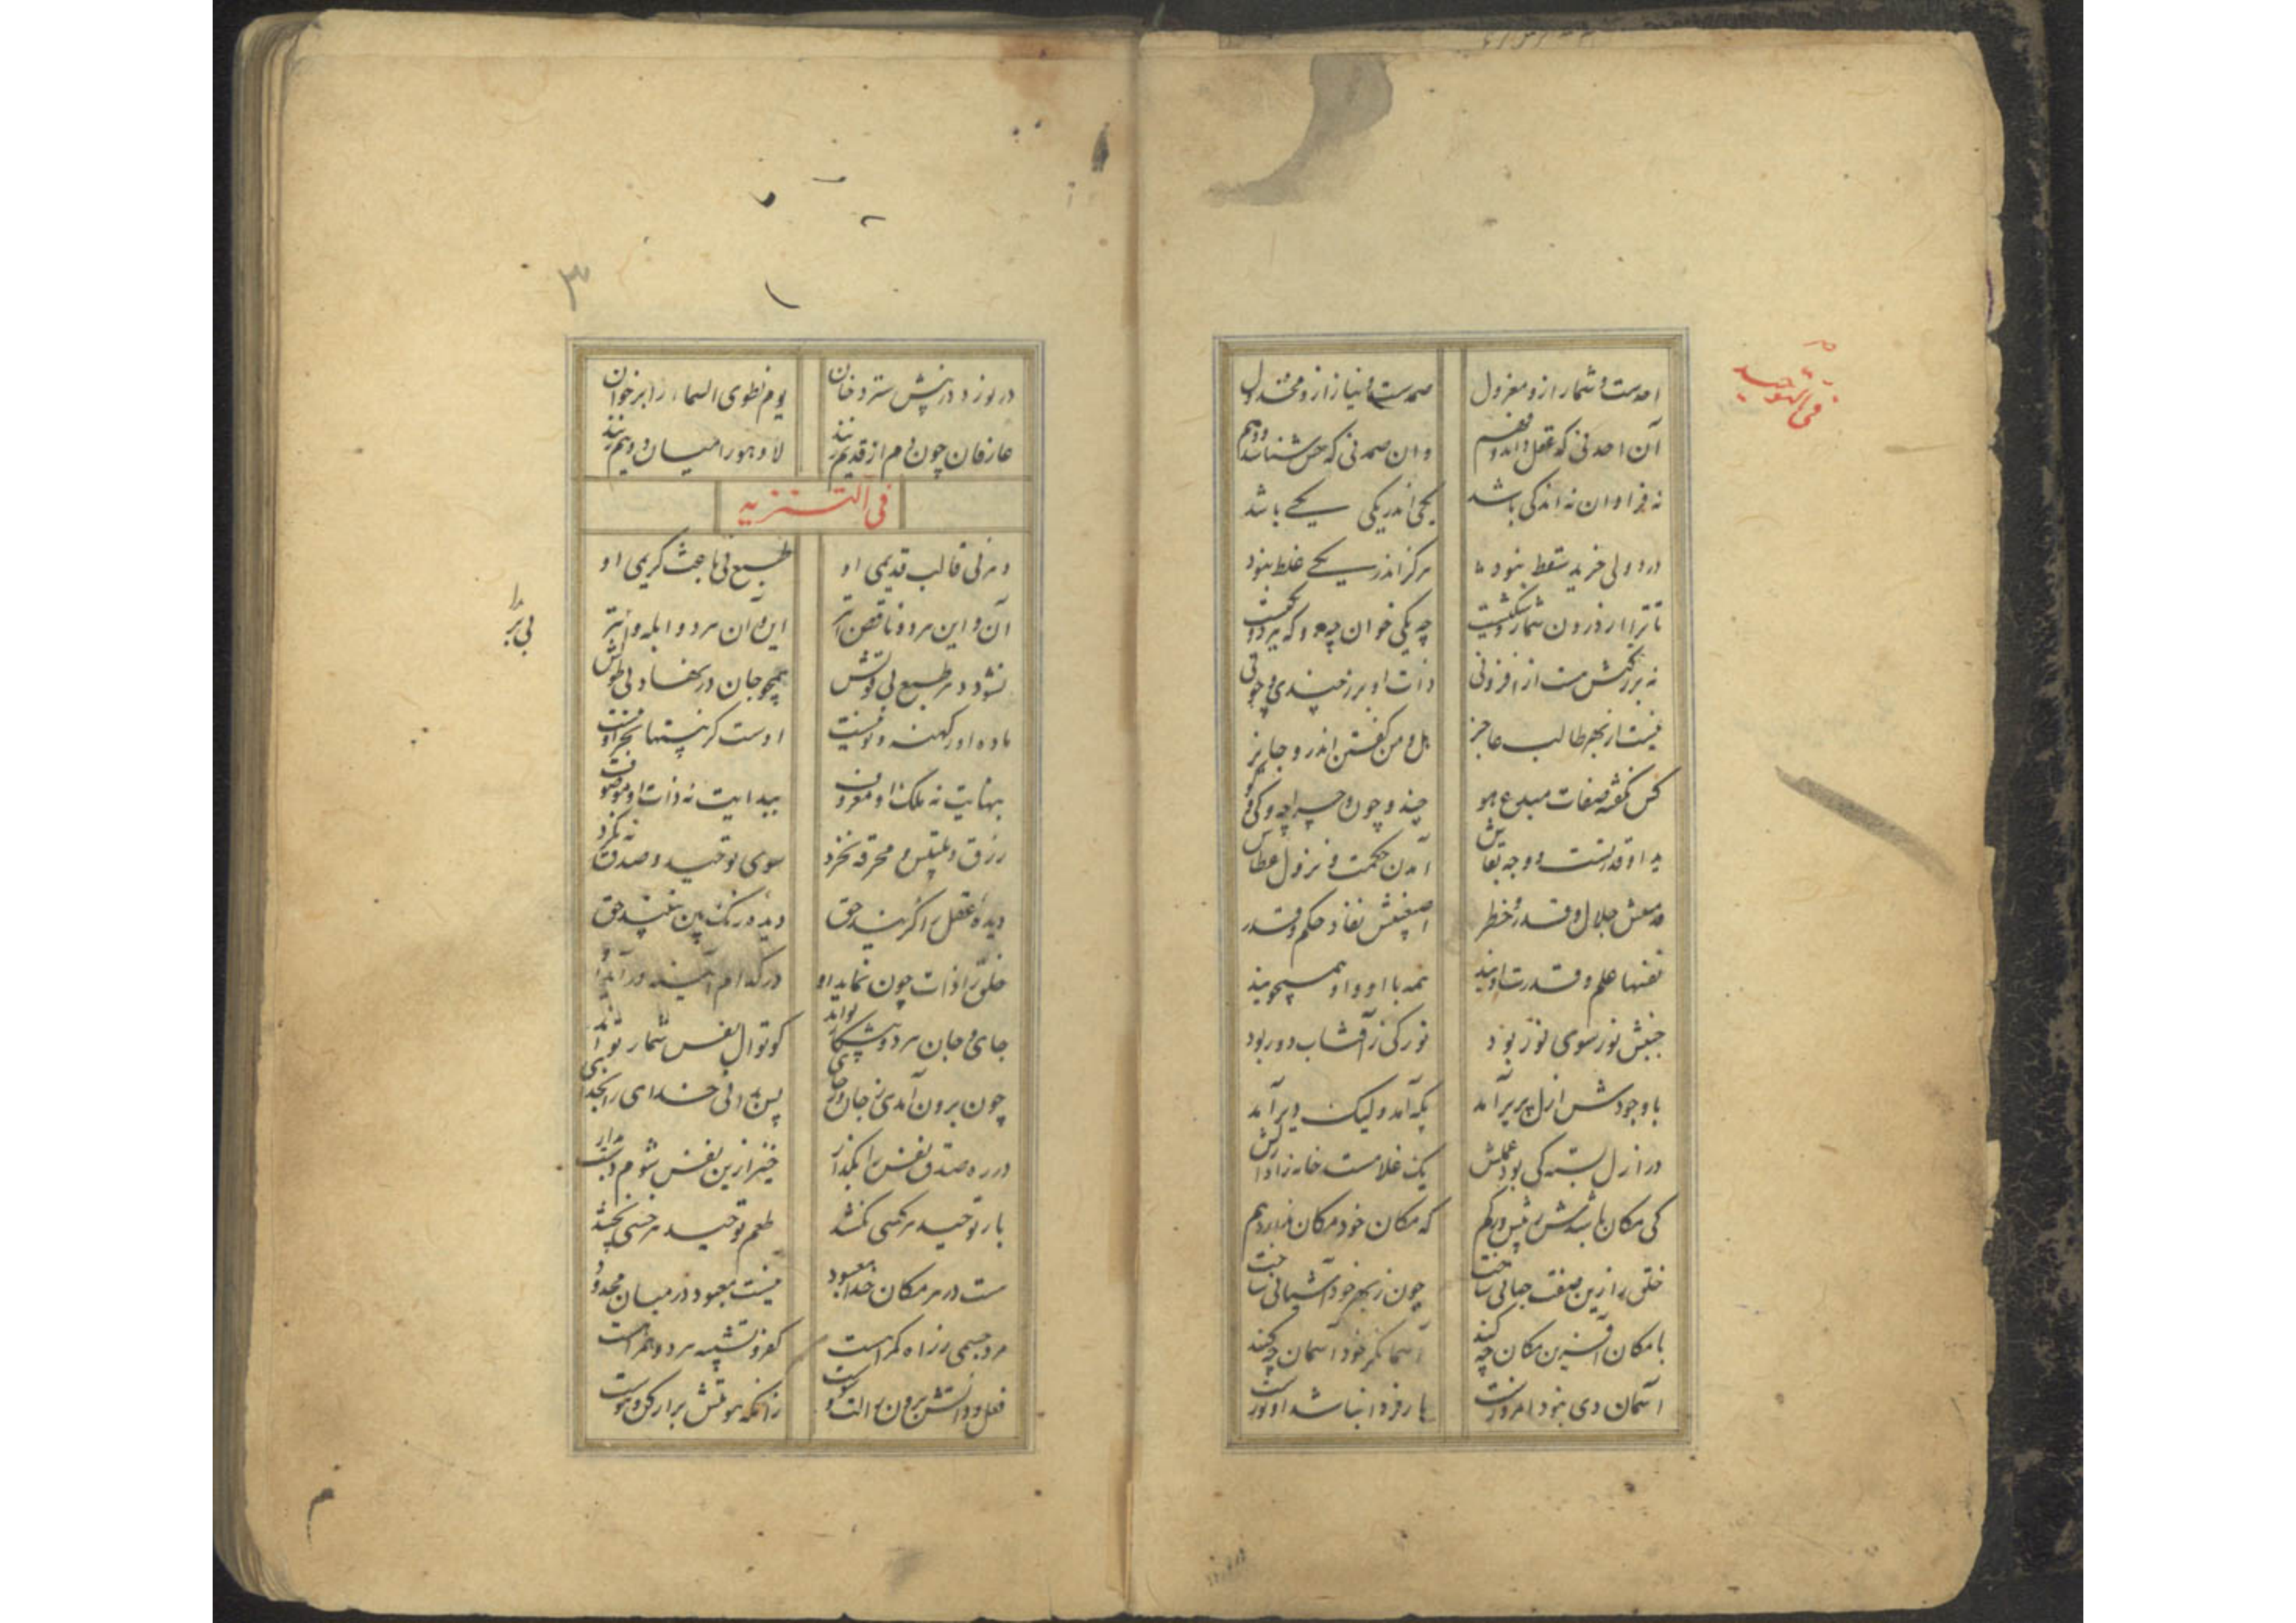 فی التوحید
احدست و شمار ازو معزول صمدست و نیاز ازو مخذول
آن احد نی که عقل داند و فهم و ان صمد نی که حس شناسد و وهم
نه فراوان نه اندکی باشد یکی اندر یکی یکی باشد
در دوئی جز بد و سقط نبود هرگز اندر یکی غلط نبود
تا ترا در درون شمار و شکیست چه یکی خوان چه دو که هر دو یکیست
نه بزرگیش هست از افزونی ذات او برز چندی و چونی
نیست از بهر طالب عاجز هل و من گفتن اندرو جایز
کس نگفته صفات مبدع هو چند و چون و چرا چه و کی و کو
ید او قدرتست و وجه بقاش آمدن حکمت و نزول عطاش
قدمینش جلال و قدر و خطر اصبعینش نفاذ حکم و قدر
نفسها علم و قدرت اویند همه با او و او همی جویند
جنبش نور سوی نور بود نور کی ز آفتاب دور بود
با وجودش ازل پریر آمد پگه آمد ولیک دیر آمد
در ازل بسته کی بود عملش یک غلامست خانه زاد ازلش
کی مکان باشدش ز پیش و ز کم که مکان خود مکان ندارد هم
خلق را زین صفت جهانی ساخت چون ز بهر خود آشیانی ساخت
با مکان آفرین مکان چکند آسمانگر خود آسمان چکند
آسمان دی نبود امروزست باز فردا نباشد او نوزست
۳
در نوردد ز پیش ستر دخان یوم نطوی السماء را بر خوان
عارفان چون دم از قدیم زنند لا و هو را میان دو نیم زنند
فی التنزیه
دهر نی قالب قدیمی او طبع نی باعث کریمی او
آن و این هر دو ناقص و ابتر این و آن هر دو ابله و ابتر
نشود دهر و طبع بی قولش همچو جان در نهاد بی طولش
ماده او ز کهنه و نو نیست اوست کز هستها بجز او نیست
بنهایت نه ملک او معروف ببدایت نه ذات او موصوف
زرق و تلبیس و مخرقه نخرد سوی توحید و صدق به نگرد
دیده عقل را گزیند حق دیده رنگ بین نبیند حق
خلق را ذات چون نماید او در کدام آینه درآید او
جای و جان هر دو پیشکار تواند کوتوال نفس شمار تواند
چون برون آمدی ز جان و ز جای پس ببینی خدای را بخدای
در ره صدق نفس را بگذار خیز ازین نفس شوم دست بدار
بار توحید هر کسی نکشد طعم توحید هر خسی نچشد
هست در هر مکان خدا معبود نیست معبود در میان محدود
مرد جسمی ز راه گمراهست کفر و تشبیه هر دو همراهست
فعل و ذاتش برون ز آلت و سوست زانکه هویتش براز کن و هوست